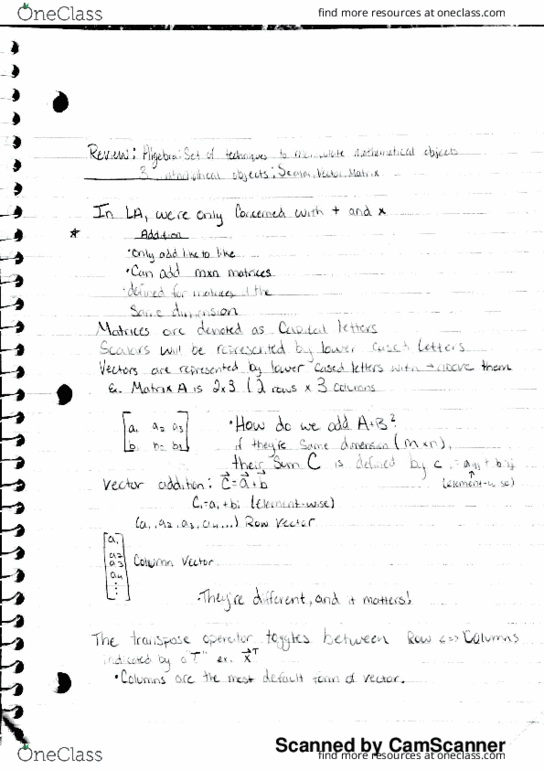 OneClass
find more resources at oneclass.com
Review: Algebra: Set of techniques to manipulate mathematical objects
3 mathematical objects: Scalar, Vector, Matrix
In LA, were only concerned with + and x
* Addition
• Only add like to like
• Can add mxn matrices
• defined for matrices the
Same dimension
Matrices are denoted as Capital letters
Scalars will be represented by lower cased letters
Vectors are represented by lower cased letters with → above them
Ex. Matrix A is 2x3 (2 rows x 3 columns
[a₁ a₂ a₃]
• How do we add A+B?
if they're same dimension (mxn),
their sum C is defined by
(element-wise)
Vector addition: c⃗ = a⃗ + b⃗
Cᵢ = aᵢ + bᵢ (Element-wise)
(a₁, a₂, a₃, a₄...) Row Vector
[a₁
a₂
a₃
a₄
⋮] Column Vector
• They're different, and it matters!
The transpose operator toggles between Row <=> Columns
indicated by a "T" ex. x⃗ᵀ
• Columns are the most default form of vector.
Scanned by CamScanner
OneClass
find more resources at oneclass.com